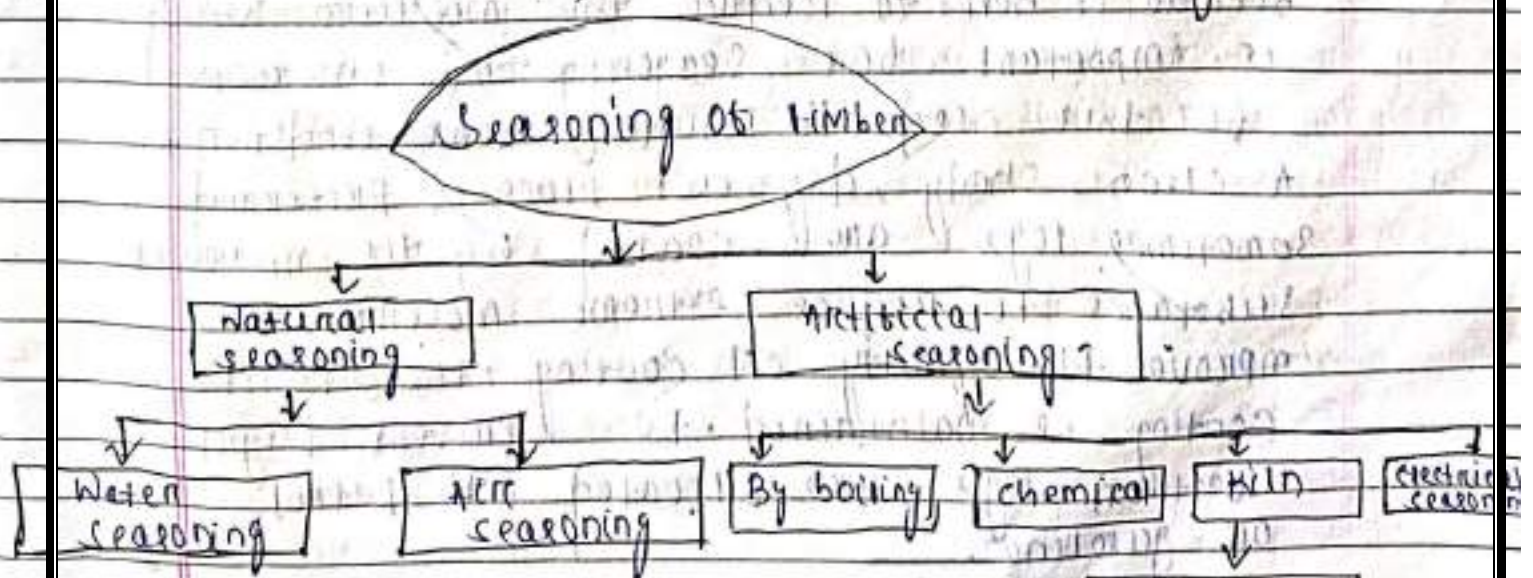 Seasoning of timber
Natural
seasoning
Artificial
seasoning :
Water
seasoning
Air
seasoning
By boiling
chemical
Kiln
electrical
seasoning